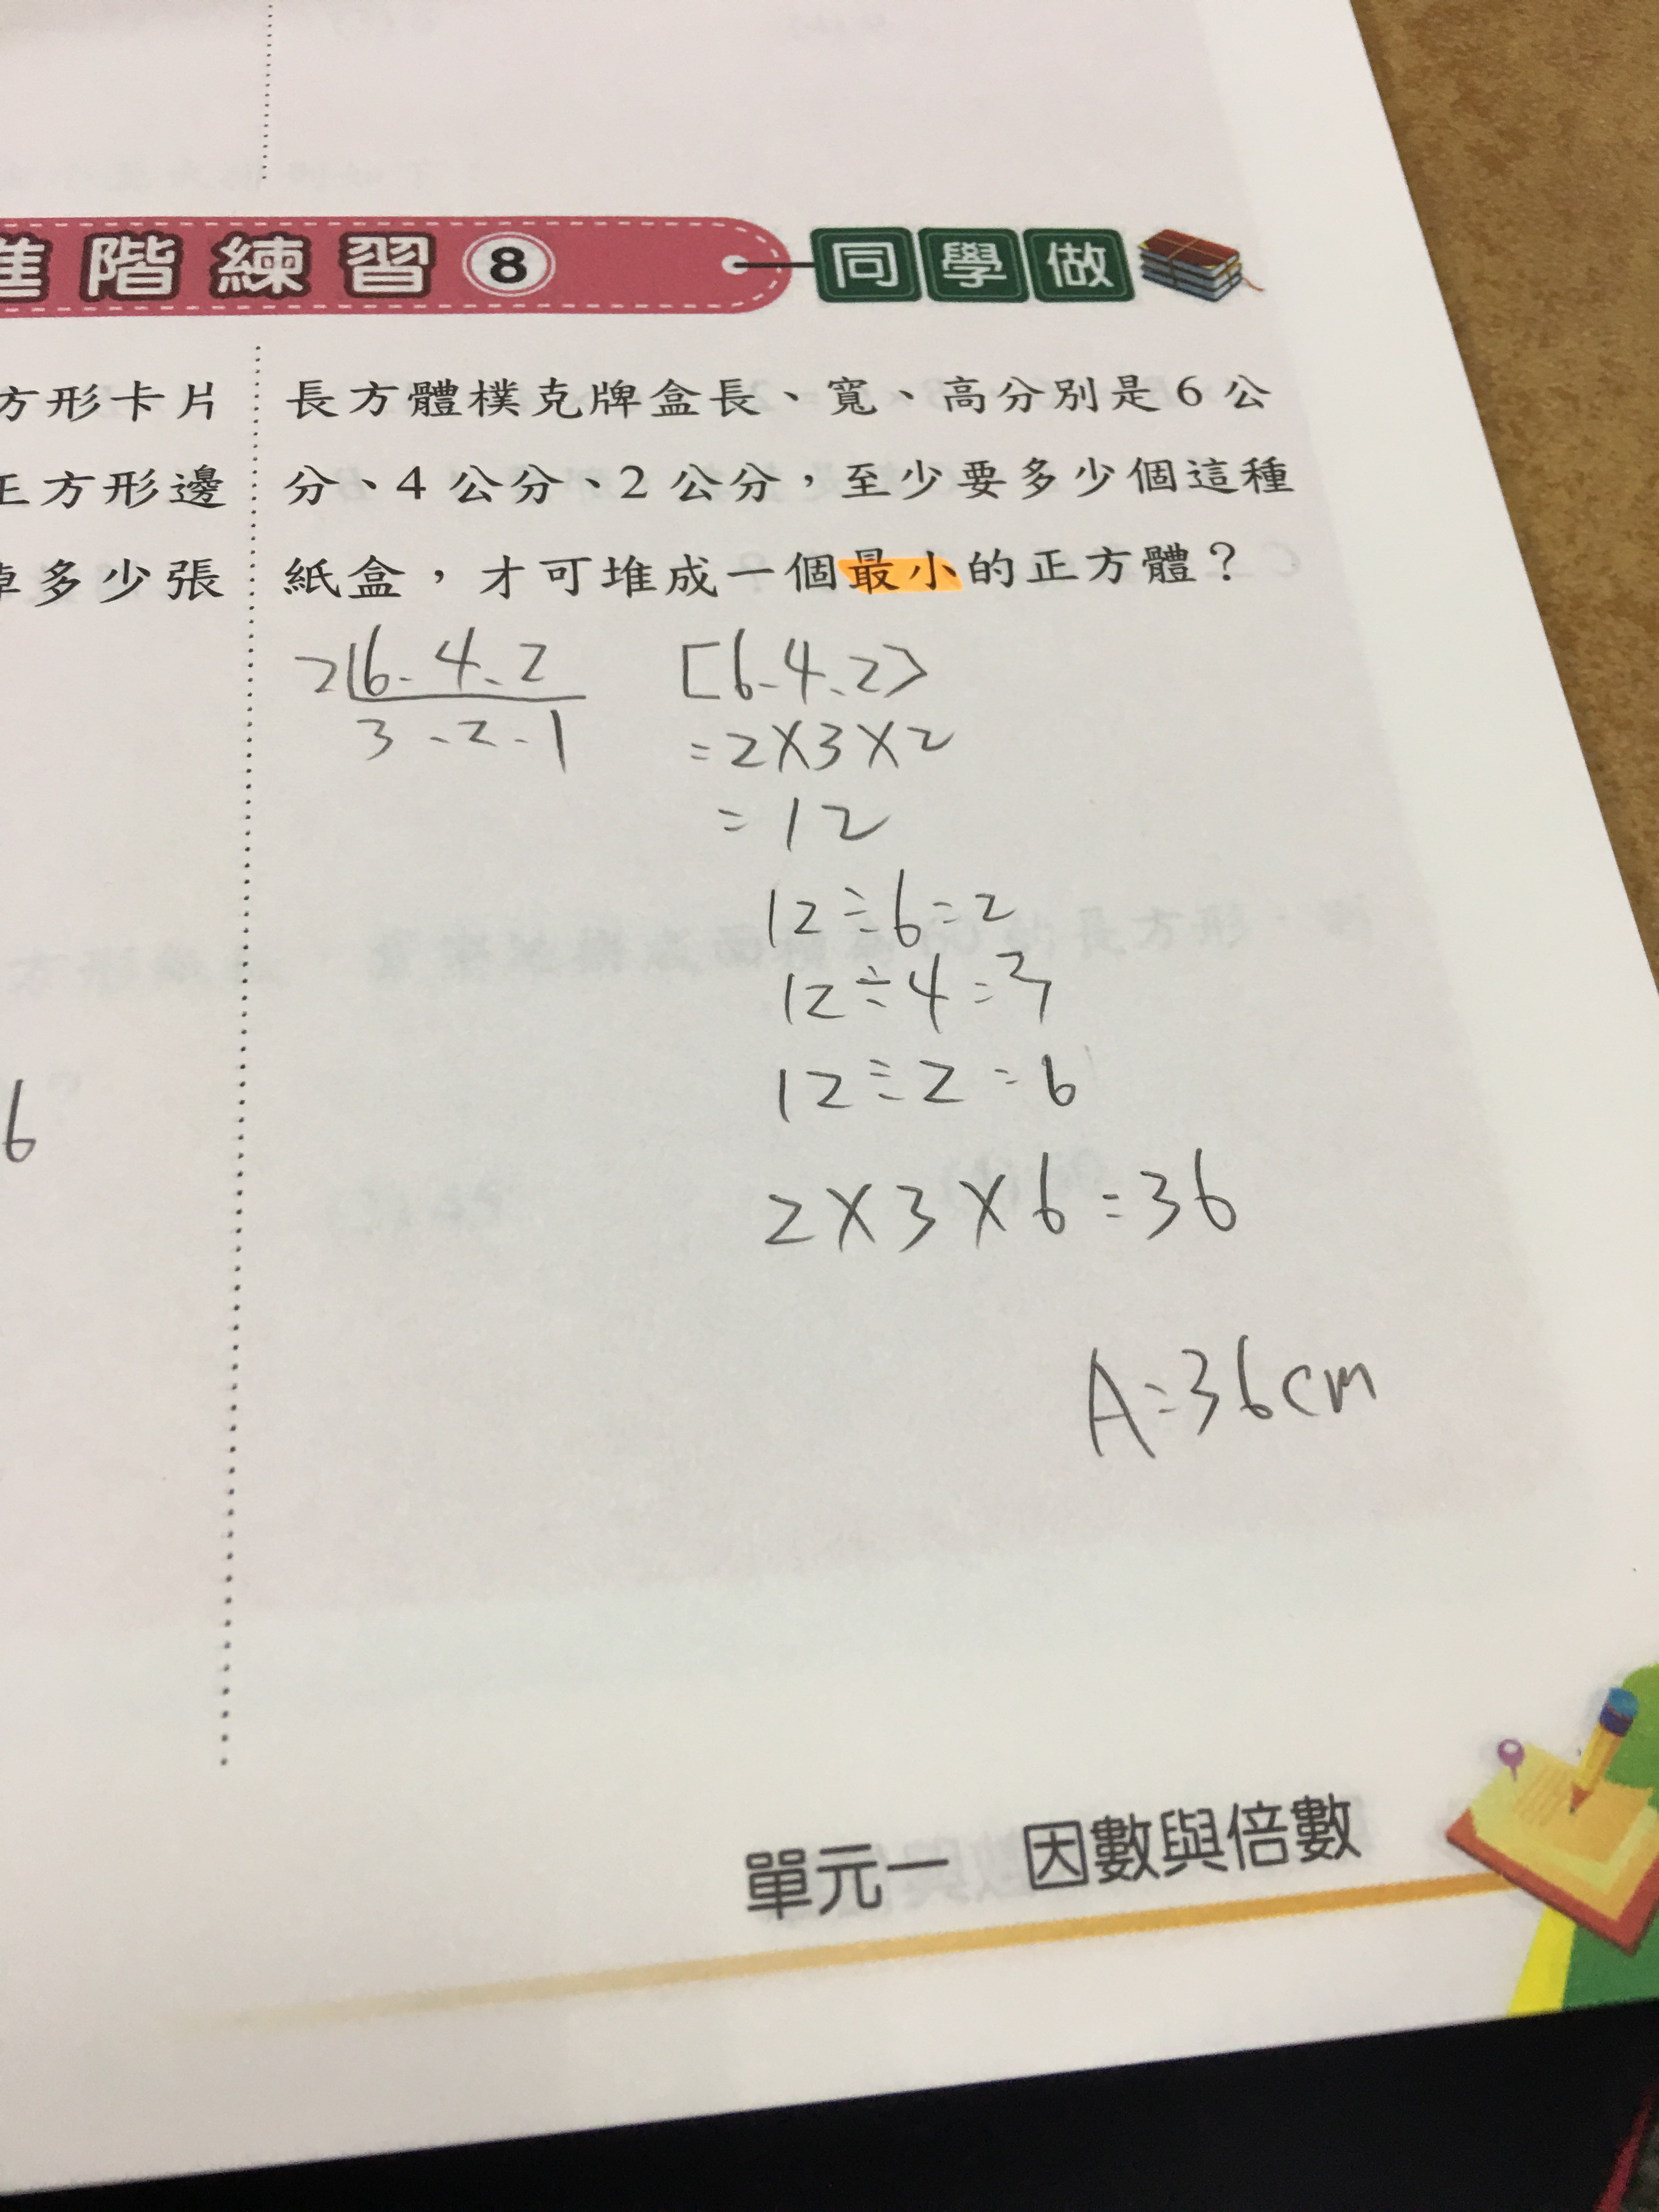 進階練習 8 同學做
方形卡片
正方形邊
多少張
6
長方體樸克牌盒長、寬、高分別是6公
分、4公分、2公分，至少要多少個這種
紙盒，才可堆成一個最小的正方體？
2|6-4-2
3-2-1
[6-4-2>
=2×3×2
=12
12÷6=2
12÷4=3
12÷2=6
2×3×6=36
A=36cm
單元一 因數與倍數